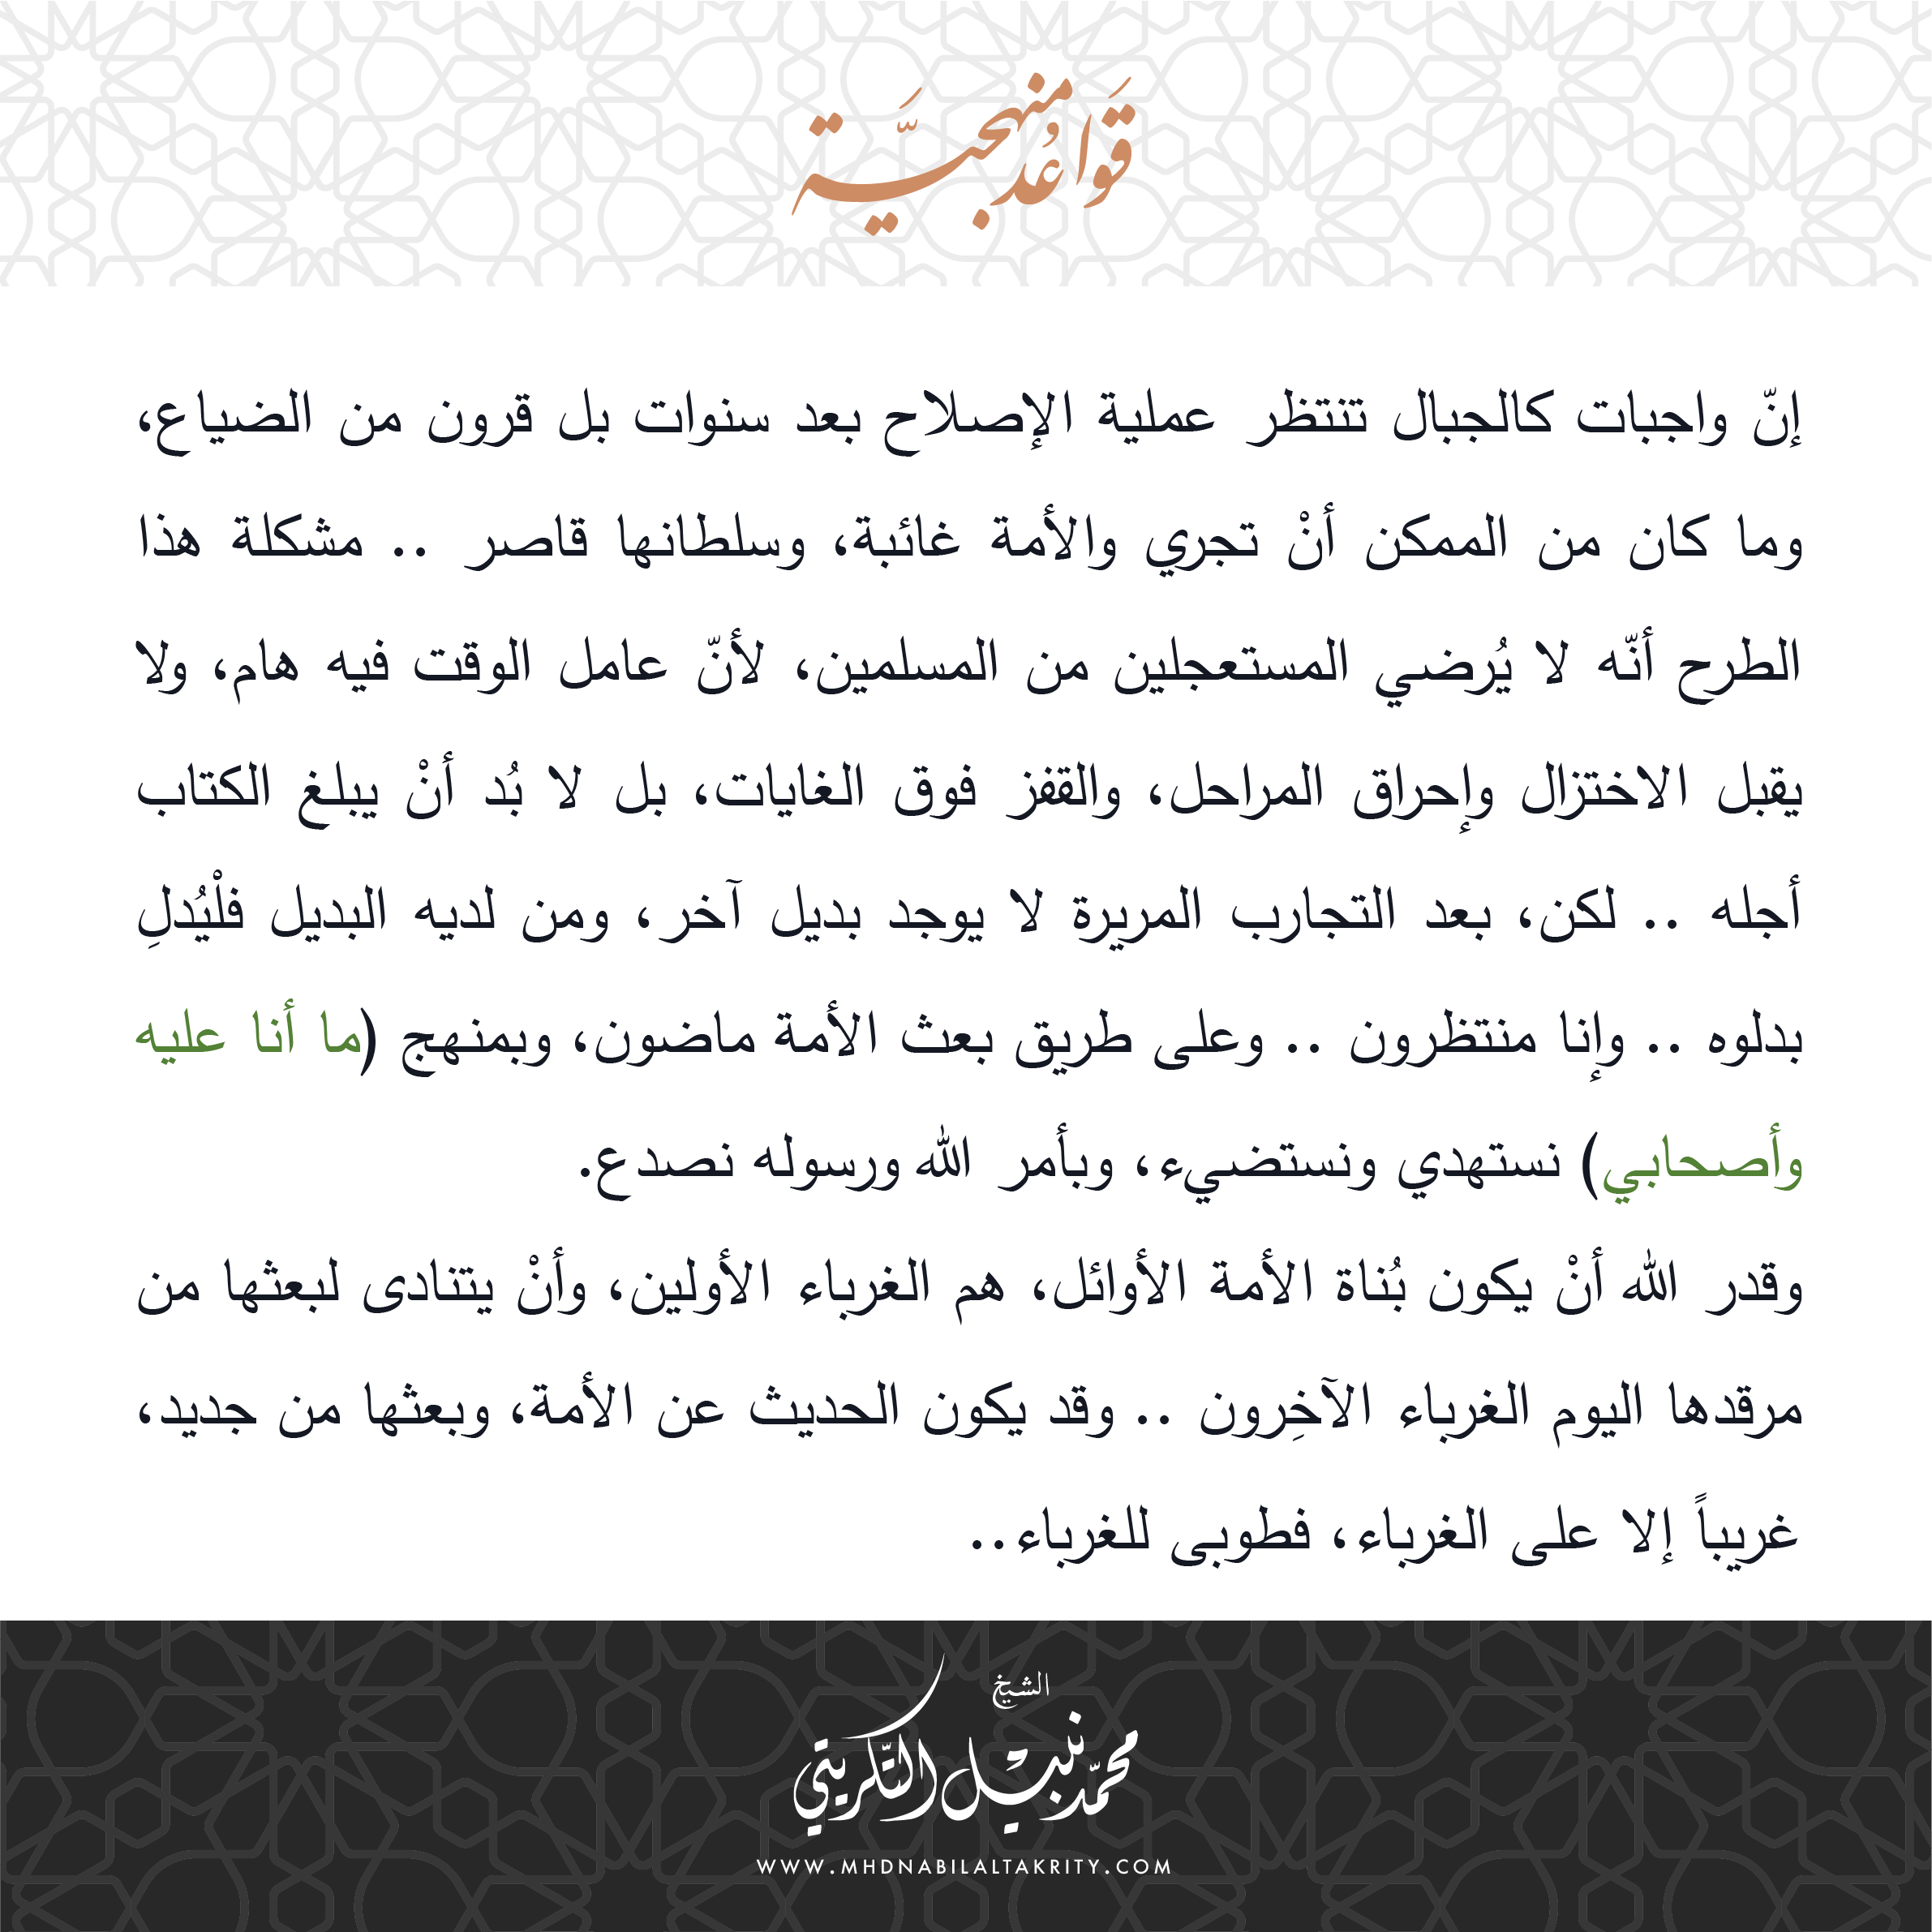 قَوَاعُد منهجيَّة
إنّ واجبات كالجبال تنتظر عملية الإصلاح بعد سنوات بل قرون من الضياع،
وما كان من الممكن أنْ تجري والأمة غائبة، وسلطانها قاصر .. مشكلة هذا
الطرح أنّه لا يُرضي المستعجلين من المسلمين، لأنّ عامل الوقت فيه هام، ولا
يقبل الاختزال وإحراق المراحل، والقفز فوق الغايات، بل لا بُد أنْ يبلغ الكتاب
أجله .. لكن، بعد التجارب المريرة لا يوجد بديل آخر، ومن لديه البديل فلْيُدلِ
بدلوه .. وإنا منتظرون .. وعلى طريق بعث الأمة ماضون، وبمنهج (ما أنا عليه
وأصحابي) نستهدي ونستضيء، وبأمر الله ورسوله نصدع.
وقدر الله أنْ يكون بُناة الأمة الأوائل، هم الغرباء الأولين، وأنْ يتنادى لبعثها من
مرقدها اليوم الغرباء الآخِرون .. وقد يكون الحديث عن الأمة، وبعثها من جديد،
غريباً إلا على الغرباء، فطوبى للغرباء..
الشيخ
محمّد نبيل التّكريتي
WWW.MHDNABILALTAKRITY.COM